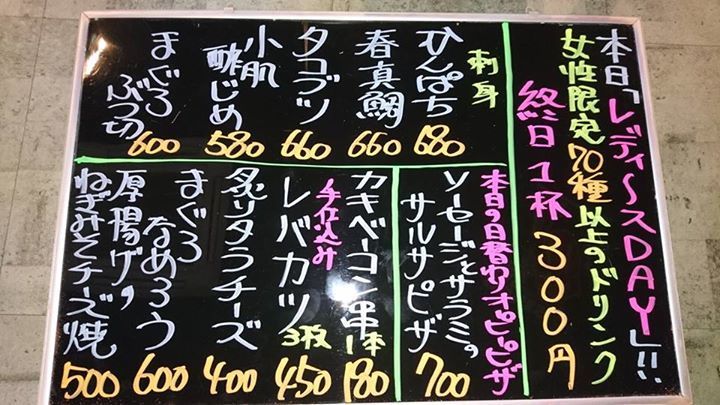 本日「レディースDAY」!!
女性限定70種以上のドリンク
終日1杯300円
刺身
ひんぱち
680
春真鯛
660
タコブツ
660
小肌
酢じめ
580
まぐろ
ぶつ切
600
本日の日替りオピピザ
ソーセージとサラミの
サルサピザ
700
カキベーコン串
1本
180
手仕込み
レバカツ
3枚
450
炙りタラチーズ
400
まぐろ
なめろう
600
厚揚げの
ねぎみそチーズ焼
500